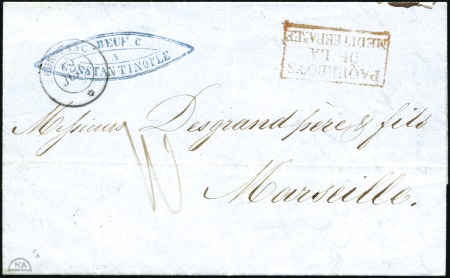 BEUF. C
A
CONSTANTINOPLE
PAQUEBOTS
DE LA
MEDITERRANEE
Messieurs Desgrand père & fils
10
Marseille.